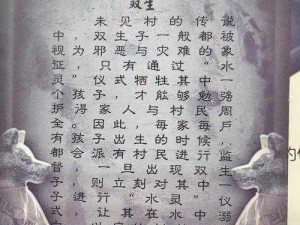 双生
未见村的传说
中，双生子一般都被
视为邪恶与灾难的象
征，只有通过“水
灵”仪式牺牲其中一
个孩子，才能够勉
护得家人与村民周
全。因此，每家每户，
有孩子出生的时候
都会派有村民进行监
督，一旦出现双生
子，则立刻对其中一
子进行“水灵”仪
式，让其在水中溺